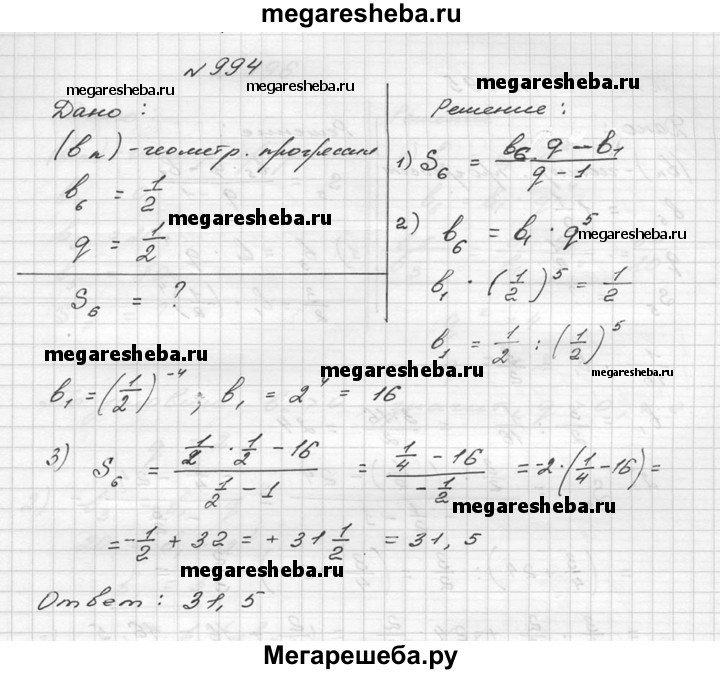 megaresheba.ru
№ 994
megaresheba.ru
megaresheba.ru
Дано :
(bₙ) - геометр. прогрессия
b₆ = 1/2
megaresheba.ru
q = 1/2
S₆ = ?
Решение :
1) S₆ = (b₆ q - b₁)/(q - 1)
2) b₆ = b₁ · q⁵
megaresheba.ru
b₁ · (1/2)⁵ = 1/2
b₁ = 1/2 : (1/2)⁵
megaresheba.ru
megaresheba.ru
megaresheba.ru
b₁ = (1/2)⁻⁴ ; b₁ = 2⁴ = 16
3) S₆ = (1/2 · 1/2 - 16)/(1/2 - 1) = (1/4 - 16)/(-1/2) = -2 · (1/4 - 16) =
megaresheba.ru
= -1/2 + 32 = + 31 1/2 = 31,5
megaresheba.ru
Ответ : 31,5
Мегарешеба.ру